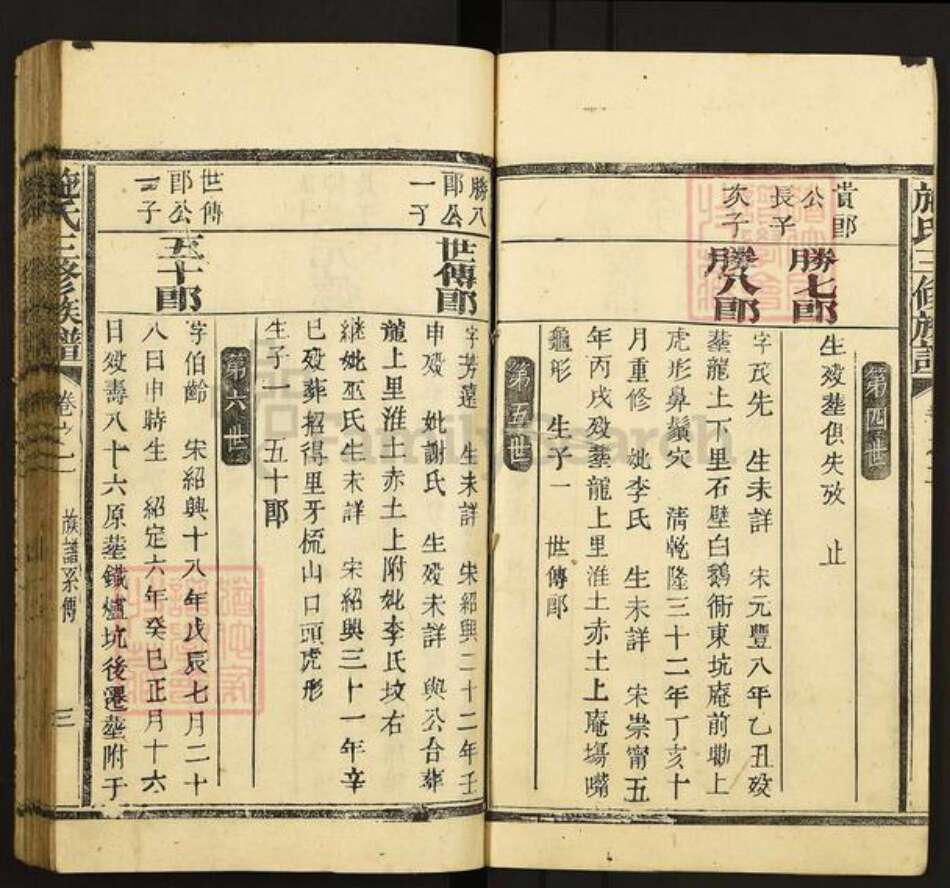 施氏三修族譜
第四世
貴郎
公
長子
勝七郎
生歿塟俱失攷 止
次子
勝八郎
字茂先 生未詳 宋元豐八年乙丑歿
塟龍上下里石壁白鵝衕東坑庵前坳上
虎形鼻鬚穴 清乾隆三十二年丁亥十
月重修 妣李氏 生未詳 宋崇甯五
年丙戌歿塟龍上里淮土赤土上庵塲嘴
龜形 生子一 世傳郎
第五世
勝八
郎公
一子
世傳郎
字芳遠 生未詳 宋紹興二十二年壬
申歿 妣謝氏 生歿未詳 與公合葬
龍上里淮土赤土上附妣李氏坟右
継妣巫氏生未詳 宋紹興三十一年辛
巳歿葬招得里牙梳山口頭虎形
生子一 五十郎
第六世
世傳
郎公
一子
五十郎
字伯齡 宋紹興十八年戊辰七月二十
八日申時生 紹定六年癸巳正月十六
日歿壽八十六原塟鐵爐坑後遷塟附于
施氏三修族譜 卷之二 族譜系傳 三
FamilySearch